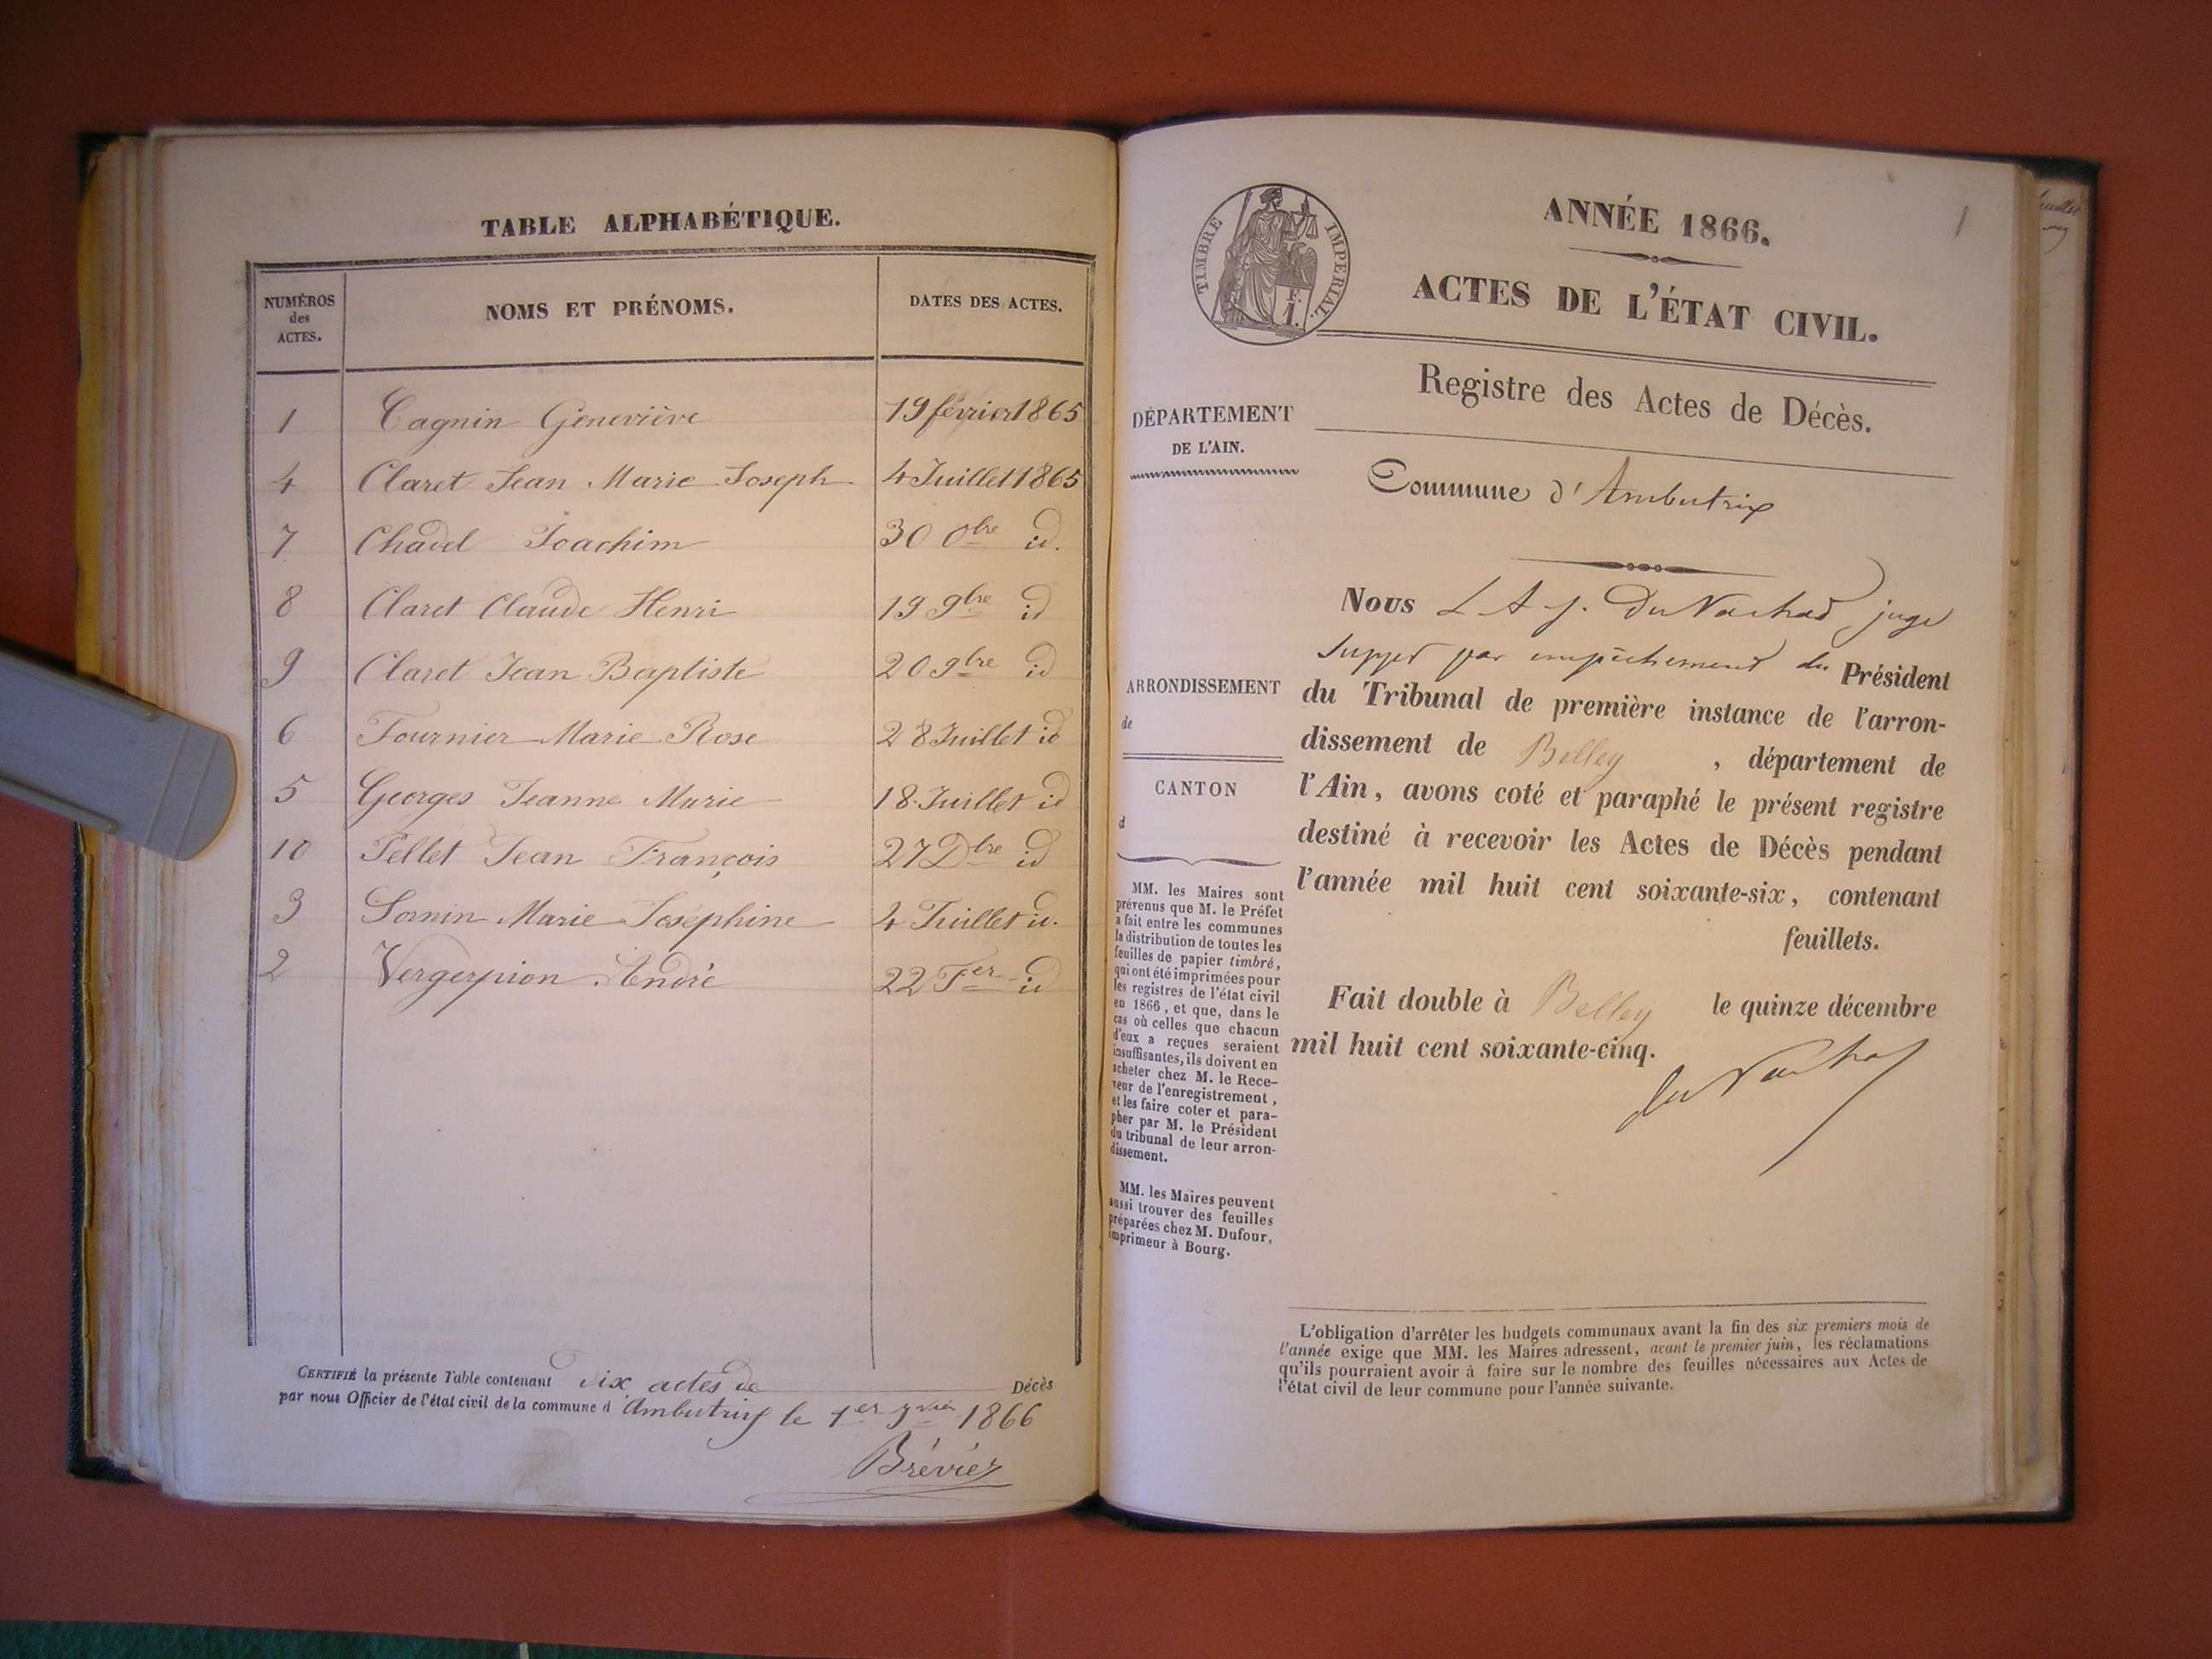 TABLE ALPHABÉTIQUE.
NUMÉROS
des
ACTES.
NOMS ET PRÉNOMS.
DATES DES ACTES.
1 Cagnin Geneviève 19 février 1865
4 Claret Jean Marie Joseph 4 Juillet 1865
7 Chavel Joachim 30 8bre id.
8 Claret Claude Henri 19 9bre id
9 Claret Jean Baptiste 20 9bre id
6 Fournier Marie Rose 28 Juillet id
5 Georges Jeanne Marie 18 Juillet id
10 Pellet Jean François 27 Dbre id
3 Sornin Marie Joséphine 4 Juillet id.
2 André 22 Fer id
CERTIFIÉ la présente Table contenant Dix actes de Décès
par nous Officier de l'état civil de la commune d'Ambutrix le 1er 1866
Brévier
1
TIMBRE IMPERIAL.
F.
1.
ANNÉE 1866.
ACTES DE L'ÉTAT CIVIL.
Registre des Actes de Décès.
DÉPARTEMENT
DE L'AIN.
Commune d'Ambutrix
ARRONDISSEMENT
de
CANTON
d
MM. les Maires sont
prévenus que M. le Préfet
a fait entre les communes
la distribution de toutes les
feuilles de papier timbré,
qui ont été imprimées pour
les registres de l'état civil
en 1866, et que, dans le
cas où celles que chacun
d'eux a reçues seraient
insuffisantes, ils doivent en
acheter chez M. le Rece-
veur de l'enregistrement,
et les faire coter et para-
pher par M. le Président
du tribunal de leur arron-
dissement.
MM. les Maires peuvent
aussi trouver des feuilles
préparées chez M. Dufour,
imprimeur à Bourg.
Nous juge
par empêchement du Président
du Tribunal de première instance de l'arron-
dissement de Belley, département de
l'Ain, avons coté et paraphé le présent registre
destiné à recevoir les Actes de Décès pendant
l'année mil huit cent soixante-six, contenant
feuillets.
Fait double à Belley le quinze décembre
mil huit cent soixante-cinq.
L'obligation d'arrêter les budgets communaux avant la fin des six premiers mois de
l'année exige que MM. les Maires adressent, avant le premier juin, les réclamations
qu'ils pourraient avoir à faire sur le nombre des feuilles nécessaires aux Actes de
l'état civil de leur commune pour l'année suivante.